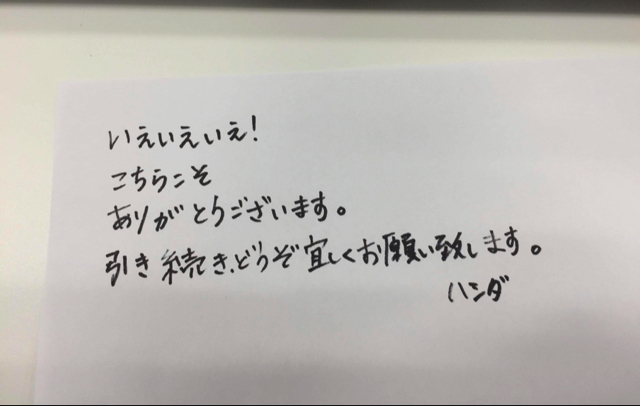 いえいえいえ!
こちらこそ
ありがとうございます。
引き続き、どうぞ宜しくお願い致します。
ハンダ